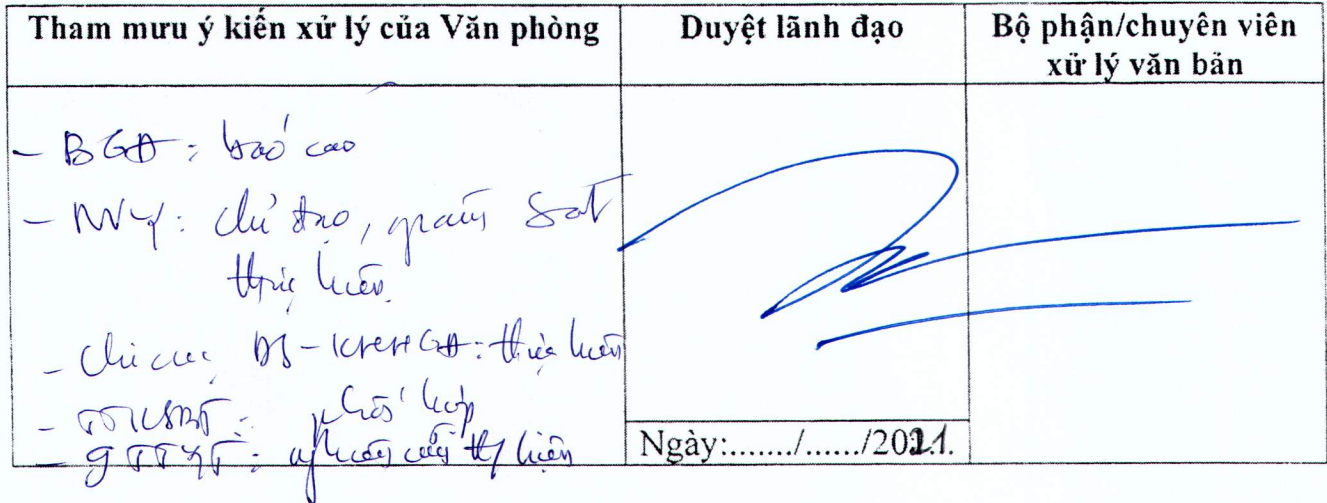 Tham mưu ý kiến xử lý của Văn phòng
Duyệt lãnh đạo
Bộ phận/chuyên viên
xử lý văn bản
- BGĐ: báo cáo
- NVY: chỉ đạo, giám sát
thực hiện
- Chi cục DS-KHHGĐ: thực hiện
- TTKSBT: phối hợp
- 9 TTYT: nghiên cứu t/ hiện
Ngày:......./....../2021.